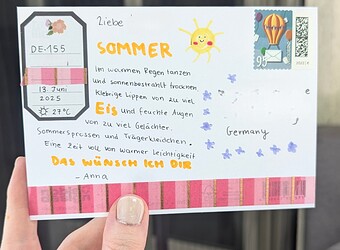 Liebe
SOMMER
DE-155
13 Juni
2025
27°C
im warmen Regen tanzen
und sonnenbestrahlt trocknen
Klebrige Lippen von zu viel
Eis und feuchte Augen
von zu viel Gelächter.
Sommersprossen und Trägerkleidchen.
Eine Zeit voll von warmer Leichtigkeit
DAS WÜNSCH ICH DIR
- Anna
95
Germany